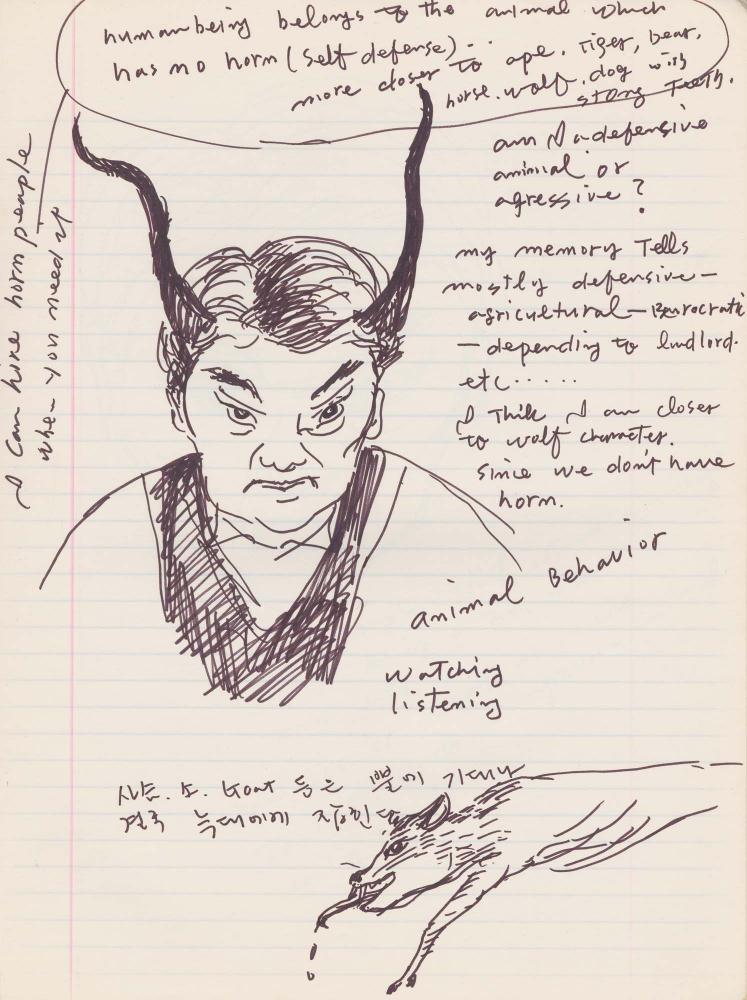 human being belongs to the animal which
has no horn (Self defense)..
more closer to ape. Tiger, bear,
horse. wolf. dog with
strong Teeth.
am I a defensive
animial or
agressive?
my memory Tells
mostly defensive—
agricultural—Beurocratic
—depending to landlord.
etc.....
I Think I am closer
to wolf character.
since we don't have
horn.
I can hire horn people
when you need it
animal Behavior
watching
listening
사슴. 소. Goat 등은 뿔에 기대나
결국 늑대에게 잡힌다